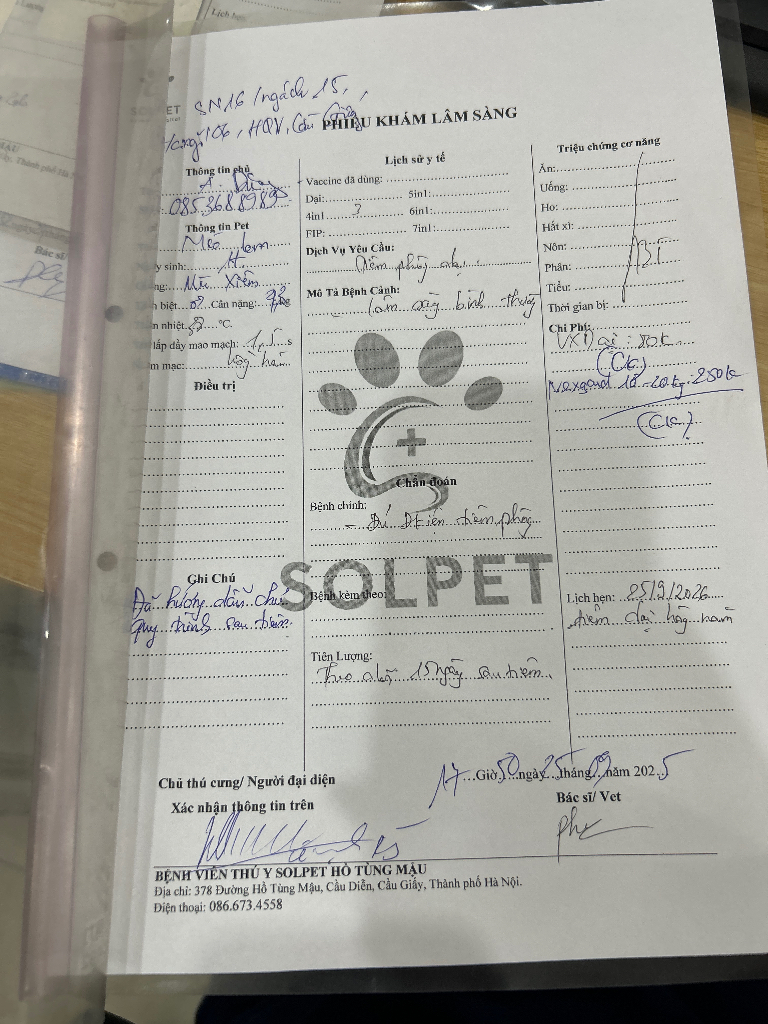 Lịch hẹn
SOLPET
SN16 / ngách 15,
106, HQV, Cầu Giấy
PHIẾU KHÁM LÂM SÀNG
Thông tin phụ
A.
085.368.8989
Thông tin Pet
Mèo
sinh:
biệt: Cân nặng:
nhiệt: °C.
lấp đầy mao mạch: 1,5 s
mạc: hồng hào
Điều trị
Ghi Chú
Đã hướng dẫn chủ
quy trình sau tiêm
Lịch sử y tế
Vaccine đã dùng:
Dại: 5in1:
4in1 3 6in1:
FIP: 7in1:
Dịch Vụ Yêu Cầu:
Tiêm phòng dại
Mô Tả Bệnh Cảnh:
- Lâm sàng bình thường
Chẩn đoán
Bệnh chính:
- Đủ ĐK tiêm phòng
SOLPET
Bệnh kèm theo:
Tiên Lượng:
Theo dõi 15 ngày sau tiêm
Triệu chứng cơ năng
Ăn:
Uống:
Ho:
Hắt xì:
Nôn:
Phân: BT
Tiểu:
Thời gian bị:
Chi Phí:
VX Dại: 80k
(CK)
Nexgard 10-20kg. 250k
(CK)
Lịch hẹn: 25/9/2026
tiêm dại hàng năm
17 Giờ 50 ngày 25 tháng 9 năm 2025
Chủ thú cưng/ Người đại diện
Xác nhận thông tin trên
Bác sĩ/ Vet
BỆNH VIỆN THÚ Y SOLPET HỒ TÙNG MẬU
Địa chỉ: 378 Đường Hồ Tùng Mậu, Cầu Diễn, Cầu Giấy, Thành phố Hà Nội.
Điện thoại: 086.673.4558